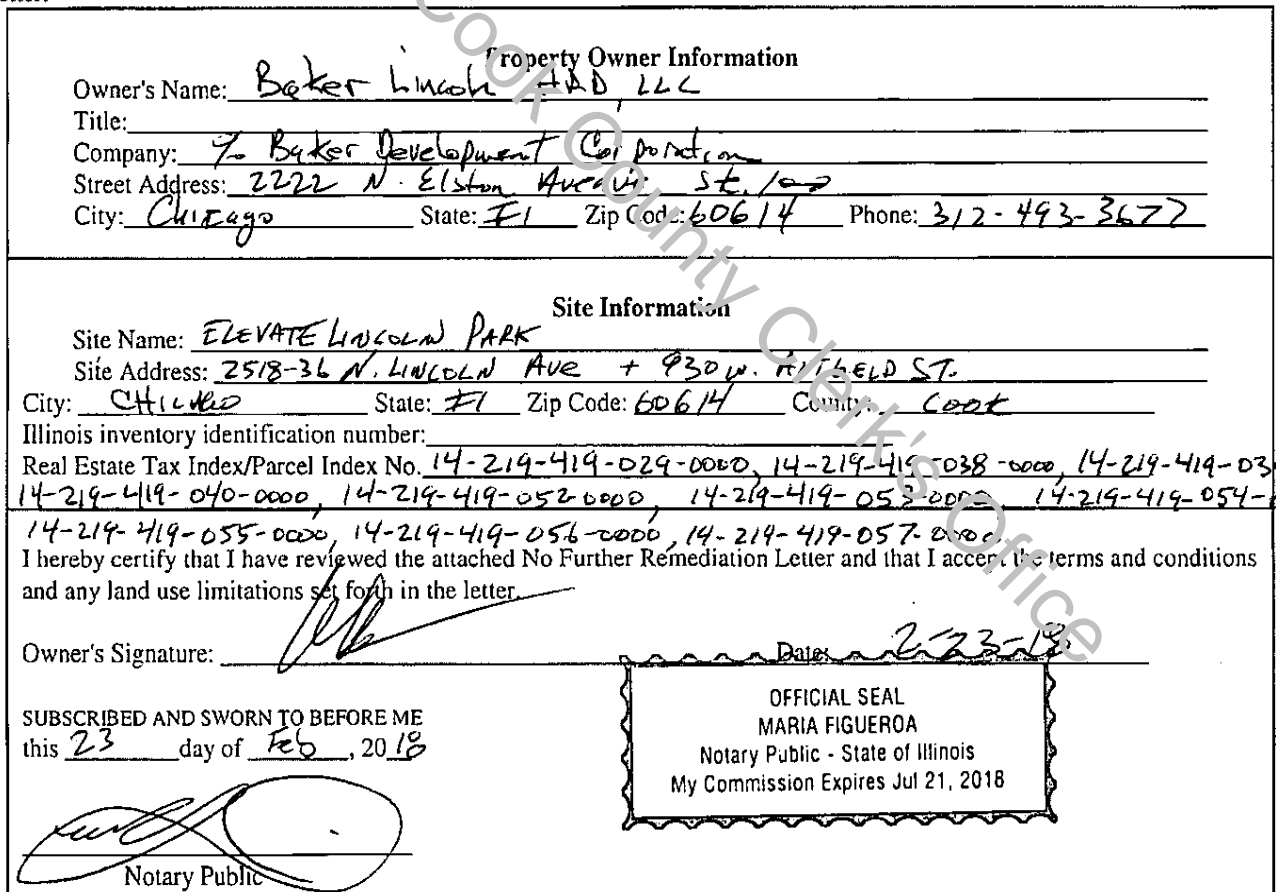 Property Owner Information
Owner's Name: Baker Lincoln LLC
Title:
Company: % Baker Development Corporation
Street Address: 2222 N. Elston Avenue St. 100
City: Chicago State: Il Zip Code: 60614 Phone: 312-493-3677
Site Information
Site Name: ELEVATE LINCOLN PARK
Site Address: 2518-36 N. LINCOLN Ave + 930 W. ST.
City: CHICAGO State: Il Zip Code: 60614 County: COOK
Illinois inventory identification number:
Real Estate Tax Index/Parcel Index No. 14-219-419-029-0000, 14-219-419-038-0000, 14-219-419-03
14-219-419-040-0000, 14-219-419-052-0000, 14-219-419-053-0000 14-219-419-054-
14-219-419-055-0000, 14-219-419-056-0000, 14-219-419-057-0000
I hereby certify that I have reviewed the attached No Further Remediation Letter and that I accept the terms and conditions
and any land use limitations set forth in the letter.
Owner's Signature: Date: 2-23-18
SUBSCRIBED AND SWORN TO BEFORE ME
this 23 day of Feb, 2018
Notary Public
OFFICIAL SEAL
MARIA FIGUEROA
Notary Public - State of Illinois
My Commission Expires Jul 21, 2018
Cook County Clerk's Office